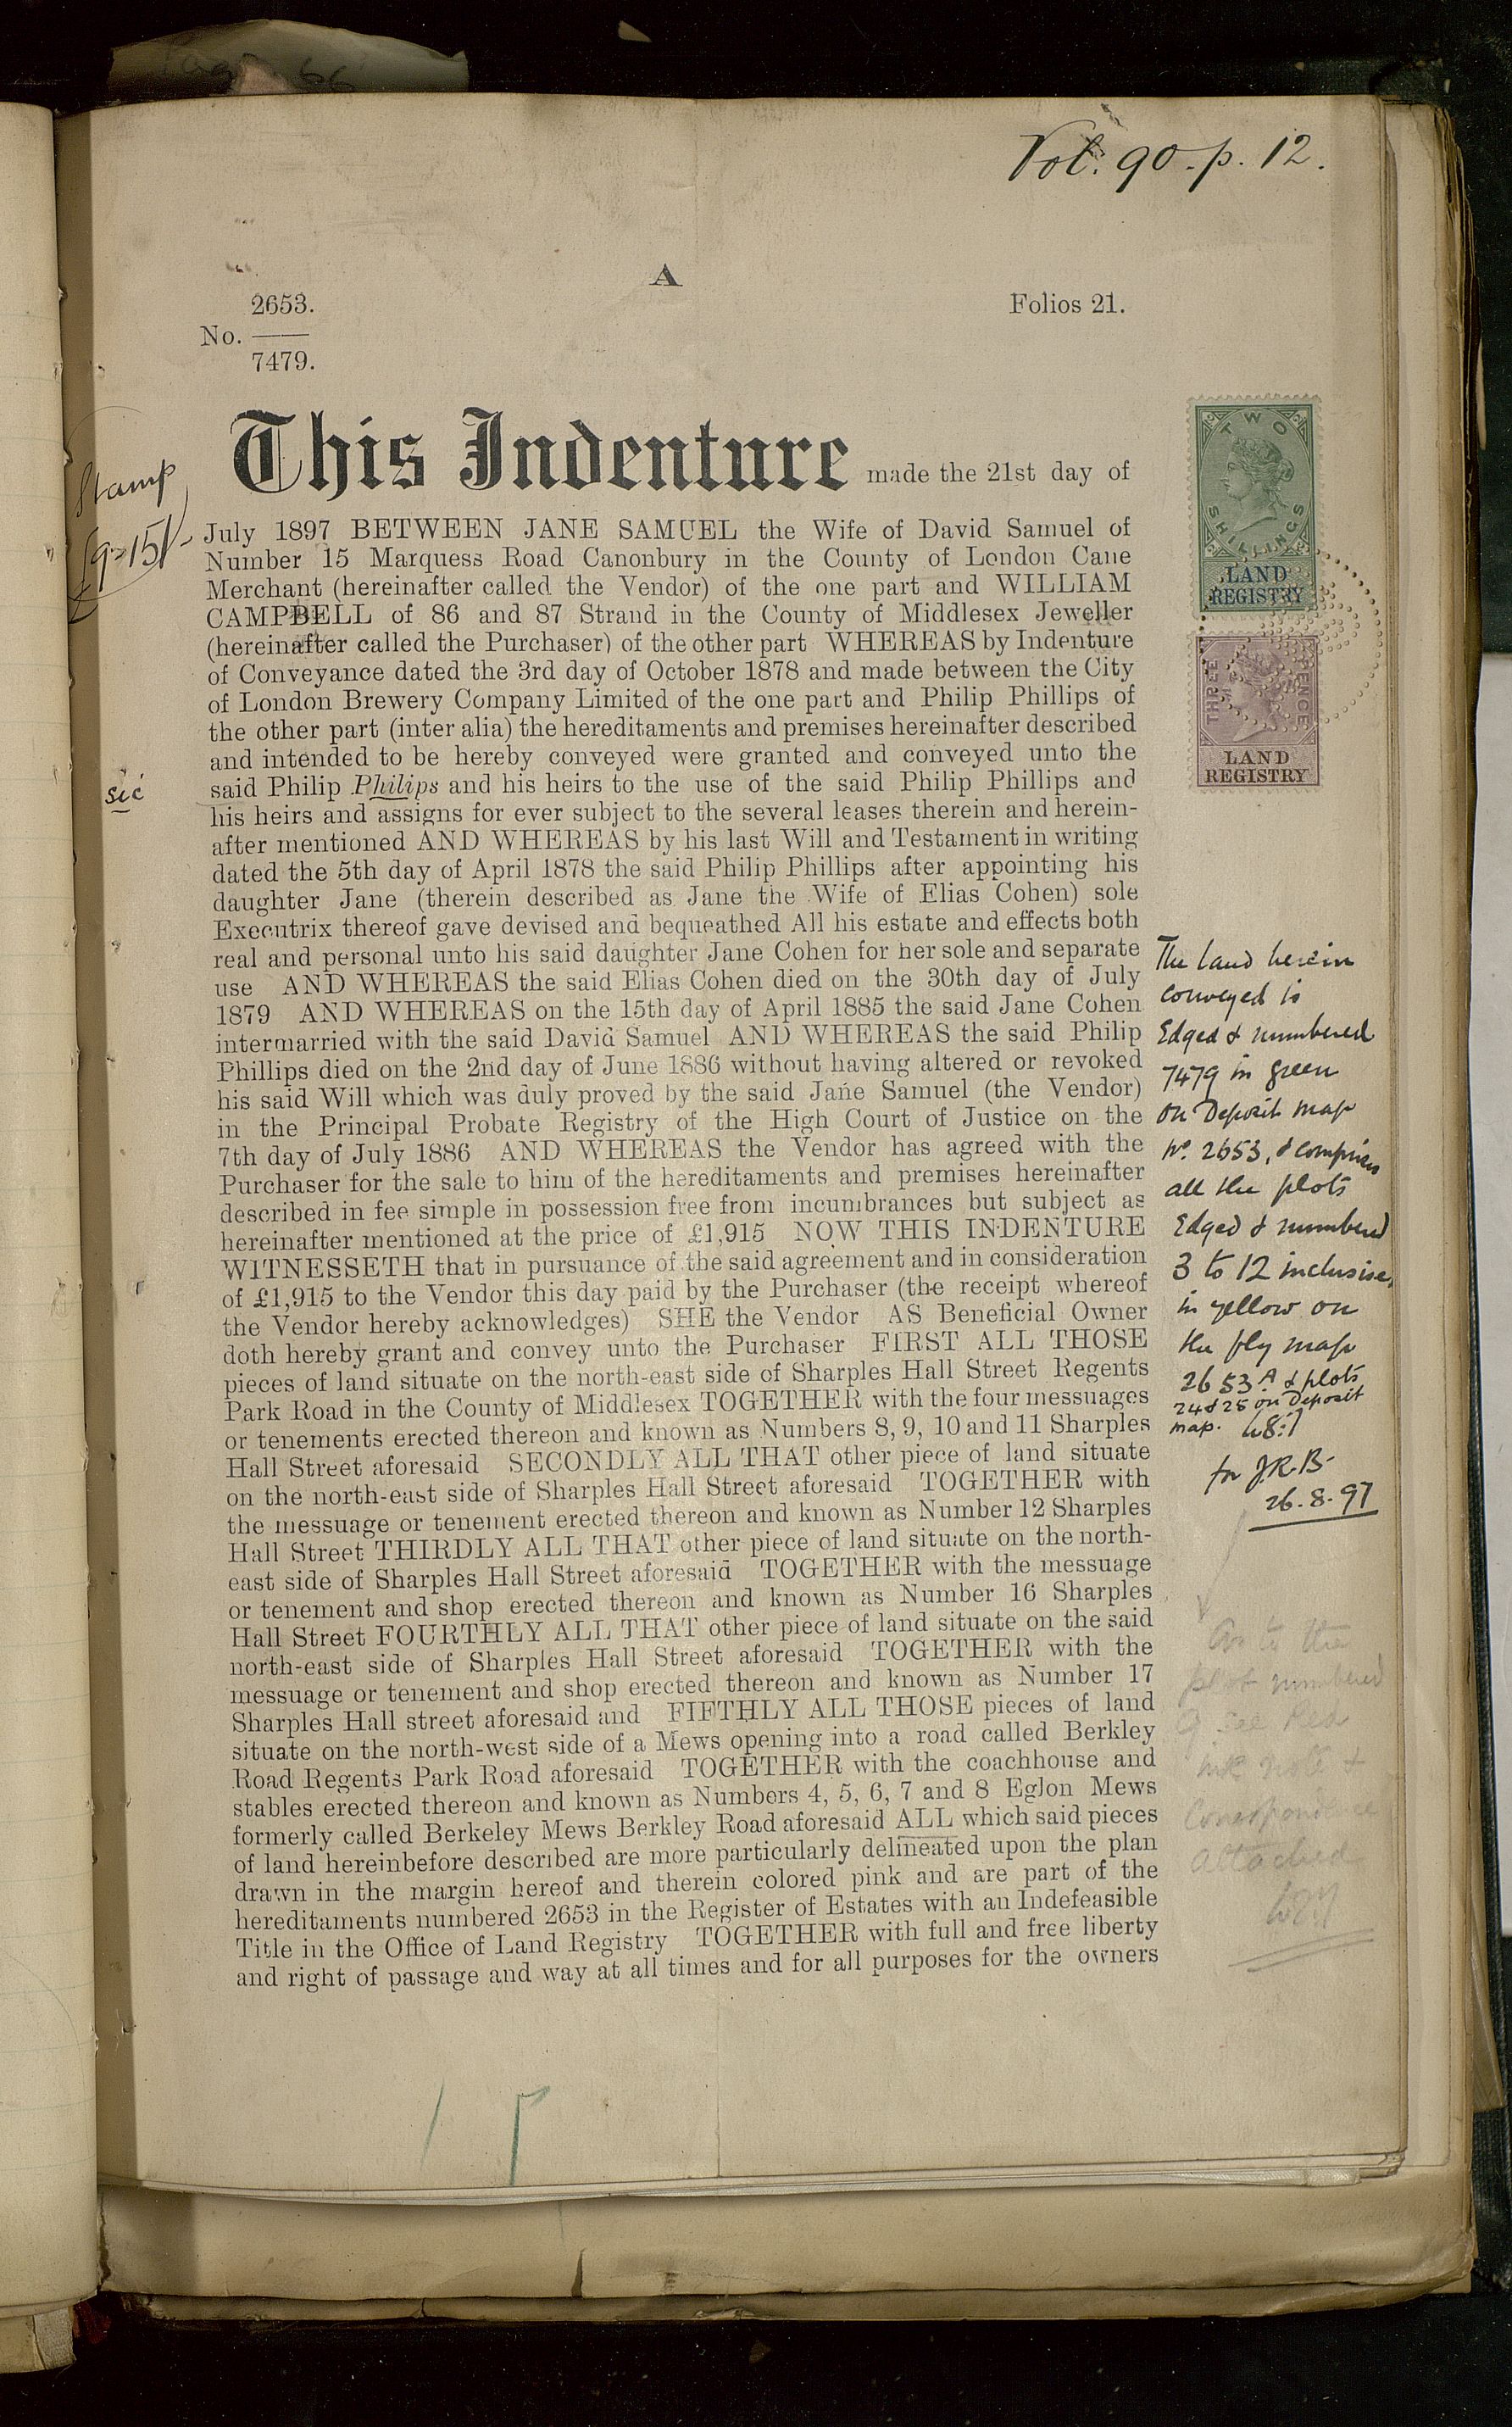 Vol. 90. p. 12.
A
2653.
Folios 21.
No.
7479.
This Indenture made the 21st day of
July 1897 BETWEEN JANE SAMUEL the Wife of David Samuel of
Number 15 Marquess Road Canonbury in the County of London Cane
Merchant (hereinafter called the Vendor) of the one part and WILLIAM
CAMPBELL of 86 and 87 Strand in the County of Middlesex Jeweller
(hereinafter called the Purchaser) of the other part WHEREAS by Indenture
of Conveyance dated the 3rd day of October 1878 and made between the City
of London Brewery Company Limited of the one part and Philip Phillips of
the other part (inter alia) the hereditaments and premises hereinafter described
and intended to be hereby conveyed were granted and conveyed unto the
said Philip Philips and his heirs to the use of the said Philip Phillips and
his heirs and assigns for ever subject to the several leases therein and herein-
after mentioned AND WHEREAS by his last Will and Testament in writing
dated the 5th day of April 1878 the said Philip Phillips after appointing his
daughter Jane (therein described as Jane the Wife of Elias Cohen) sole
Executrix thereof gave devised and bequeathed All his estate and effects both
real and personal unto his said daughter Jane Cohen for her sole and separate
use AND WHEREAS the said Elias Cohen died on the 30th day of July
1879 AND WHEREAS on the 15th day of April 1885 the said Jane Cohen
intermarried with the said David Samuel AND WHEREAS the said Philip
Phillips died on the 2nd day of June 1886 without having altered or revoked
his said Will which was duly proved by the said Jane Samuel (the Vendor)
in the Principal Probate Registry of the High Court of Justice on the
7th day of July 1886 AND WHEREAS the Vendor has agreed with the
Purchaser for the sale to him of the hereditaments and premises hereinafter
described in fee simple in possession free from incumbrances but subject as
hereinafter mentioned at the price of £1,915 NOW THIS INDENTURE
WITNESSETH that in pursuance of the said agreement and in consideration
of £1,915 to the Vendor this day paid by the Purchaser (the receipt whereof
the Vendor hereby acknowledges) SHE the Vendor AS Beneficial Owner
doth hereby grant and convey unto the Purchaser FIRST ALL THOSE
pieces of land situate on the north-east side of Sharples Hall Street Regents
Park Road in the County of Middlesex TOGETHER with the four messuages
or tenements erected thereon and known as Numbers 8, 9, 10 and 11 Sharples
Hall Street aforesaid SECONDLY ALL THAT other piece of land situate
on the north-east side of Sharples Hall Street aforesaid TOGETHER with
the messuage or tenement erected thereon and known as Number 12 Sharples
Hall Street THIRDLY ALL THAT other piece of land situate on the north-
east side of Sharples Hall Street aforesaid TOGETHER with the messuage
or tenement and shop erected thereon and known as Number 16 Sharples
Hall Street FOURTHLY ALL THAT other piece of land situate on the said
north-east side of Sharples Hall Street aforesaid TOGETHER with the
messuage or tenement and shop erected thereon and known as Number 17
Sharples Hall street aforesaid and FIFTHLY ALL THOSE pieces of land
situate on the north-west side of a Mews opening into a road called Berkley
Road Regents Park Road aforesaid TOGETHER with the coachhouse and
stables erected thereon and known as Numbers 4, 5, 6, 7 and 8 Eglon Mews
formerly called Berkeley Mews Berkley Road aforesaid ALL which said pieces
of land hereinbefore described are more particularly delineated upon the plan
drawn in the margin hereof and therein colored pink and are part of the
hereditaments numbered 2653 in the Register of Estates with an Indefeasible
Title in the Office of Land Registry TOGETHER with full and free liberty
and right of passage and way at all times and for all purposes for the owners
Stamp
£9=15/-
sic
TWO
SHILLINGS
LAND
REGISTRY
THREE PENCE
LAND
REGISTRY
The land herein
conveyed is
Edged & numbered
7479 in green
on Deposit map
No. 2653, & comprises
all the plots
Edged & numbered
3 to 12 inclusive,
in yellow on
the fly map
2653 A & plots
24 & 25 on Deposit
map.
for J.R.B-
26.8.97
As to the
plot numbered
9 see Red
ink note &
Correspondence
attached